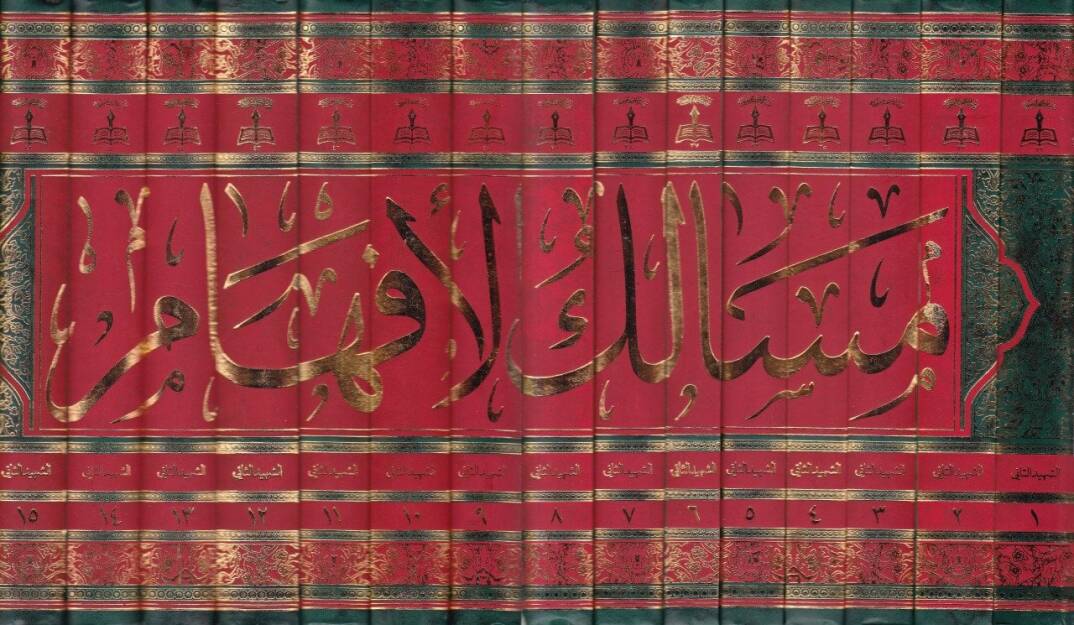 مسالك لأفهام
الشهيد الثاني الشهيد الثاني الشهيد الثاني الشهيد الثاني الشهيد الثاني الشهيد الثاني الشهيد الثاني الشهيد الثاني الشهيد الثاني الشهيد الثاني الشهيد الثاني الشهيد الثاني الشهيد الثاني الشهيد الثاني الشهيد الثاني
١ ٢ ٣ ٤ ٥ ٦ ٧ ٨ ٩ ١٠ ١١ ١٢ ١٣ ١٤ ١٥